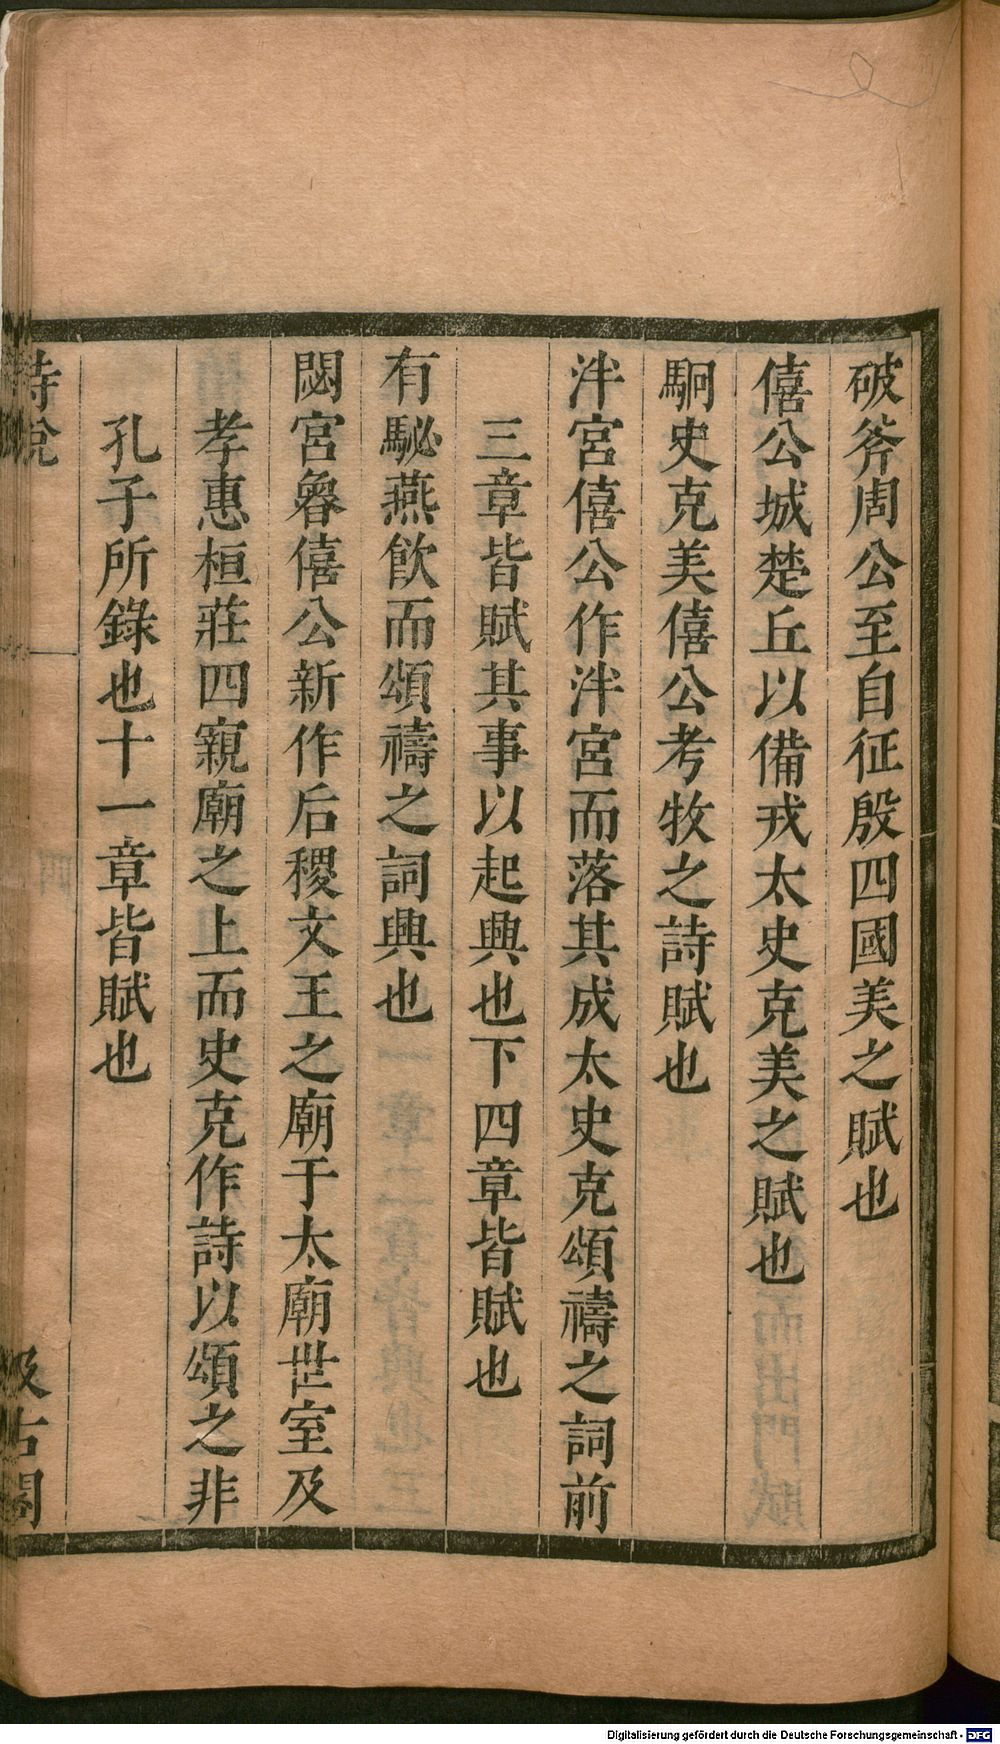 破斧周公至自征殷四國美之賦也
僖公城楚丘以備戎太史克美之賦也
駉史克美僖公考牧之詩賦也
泮宮僖公作泮宮而落其成太史克頌禱之詞前
三章皆賦其事以起興也下四章皆賦也
有駜燕飲而頌禱之詞興也
閟宮魯僖公新作后稷文王之廟于太廟世室及
孝惠桓莊四親廟之上而史克作詩以頌之非
孔子所錄也十一章皆賦也
詩說
汲古閣
Digitalisierung gefördert durch die Deutsche Forschungsgemeinschaft - DFG